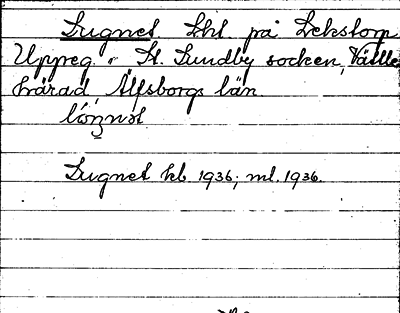 Lugnet Lht på Lekstorp
Uppreg. i St. Lundby socken, Vättle
härad, Älfsborgs län

Lugnet kb 1936; ml. 1936.